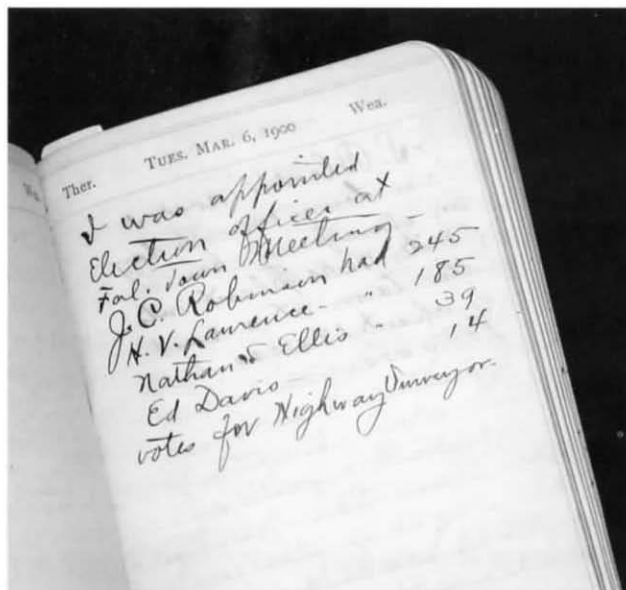 Ther. TUES. MAR. 6, 1900 Wea.
I was appointed
Election officer at
Fal. Town Meeting -
J. C. Robinson had 245
H. V. Lawrence - " 185
Nathan S Ellis " 39
Ed Davis 14
votes for Highway Surveyor.